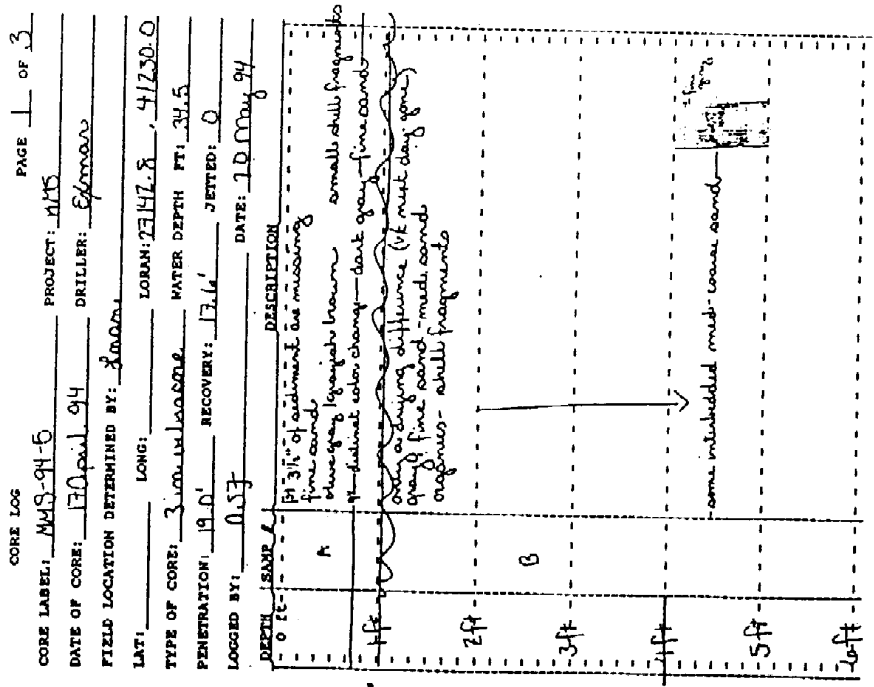 CORE LOG
PAGE 1 OF 3
CORE LABEL: MMS-94-5 PROJECT: MMS
DATE OF CORE: 17 April 94 DRILLER: Exmar
FIELD LOCATION DETERMINED BY: Loran
LAT: LONG: LORAN: 27147.8, 41230.0
TYPE OF CORE: 3 in WATER DEPTH FT: 34.5
PENETRATION: 19.0' RECOVERY: 17.6' JETTED: 0
LOGGED BY: DATE: 20 May 94
DEPTH SAMP # DESCRIPTION
0 ft
1st 3½" of sediment are missing
fine sand
A olive gray/grayish brown small shell fragments
distinct color change - dark gray - fine sand
1 ft
only a drying difference (vk next day: gone)
gray fine sand - med. sand
organics - shell fragments
2 ft
B
3 ft
4 ft
some interbedded med-coarse sand
fine
5 ft
6 ft